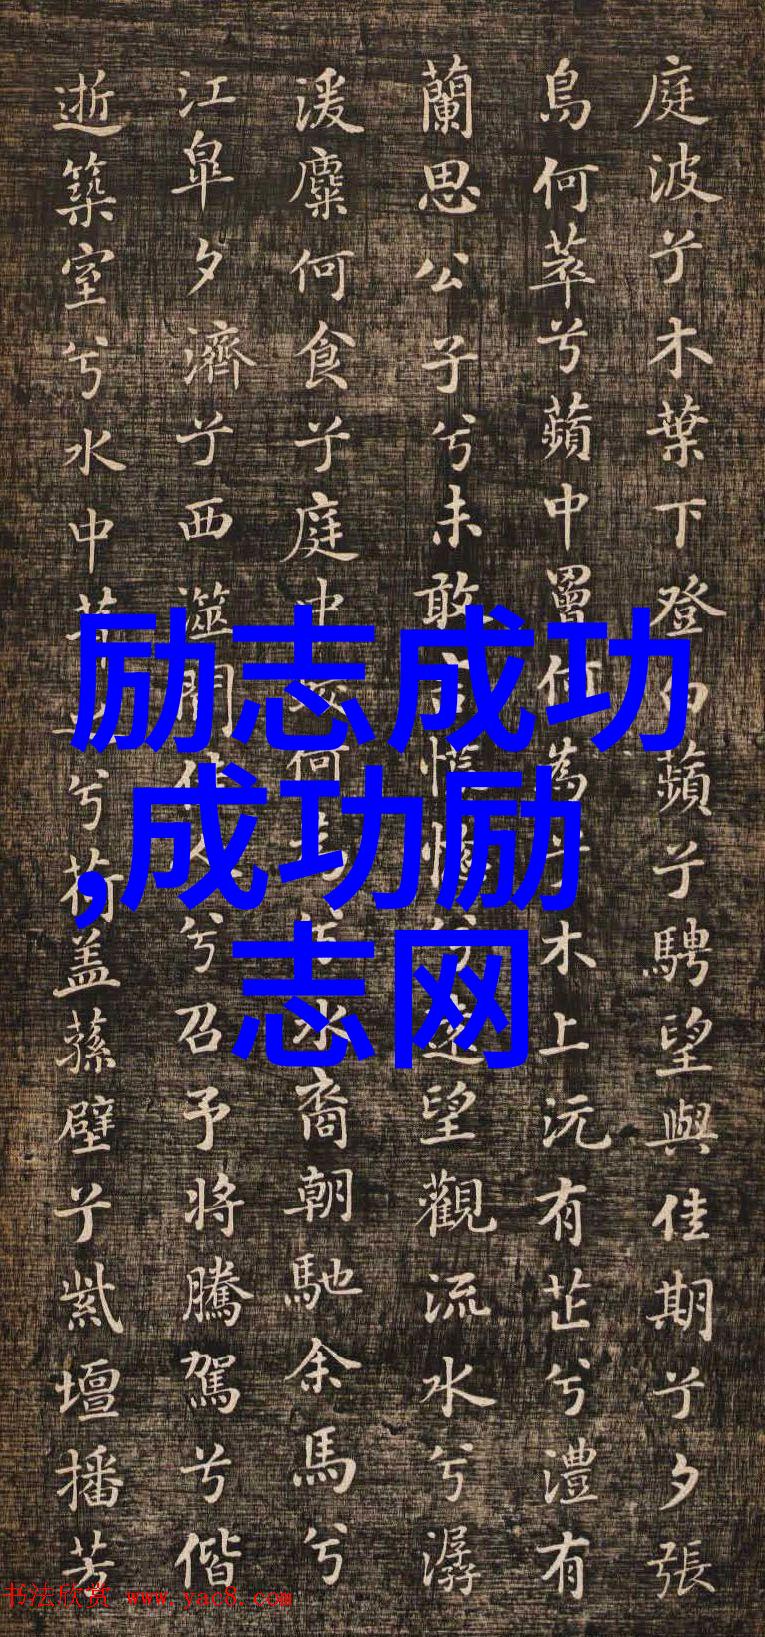 庭波兮木葉下登白蘋兮騁望與佳期兮夕張
鳥何萃兮蘋中罾何為兮木上沅有芷兮澧有
蘭思公子兮未敢言慌惚兮遠望觀流水兮潺
湲麋何食兮庭中蛟何為兮水裔朝馳余馬兮
江皐夕濟兮西澨聞佳人兮召予將騰駕兮偕
逝築室兮水中葺之兮荷盖蓀壁兮紫壇播芳
励志成功
,成功励
志网
书法欣赏 www.yac8.com